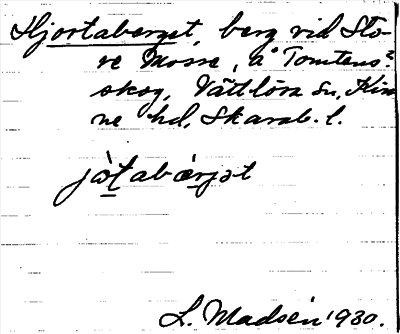 Hjortaberget, berg vid Sto-
re Mosse, å Tomtens
skog, Vättlösa sn, Kin
ne hd, Skarab. l.
L. Madsén 1930.